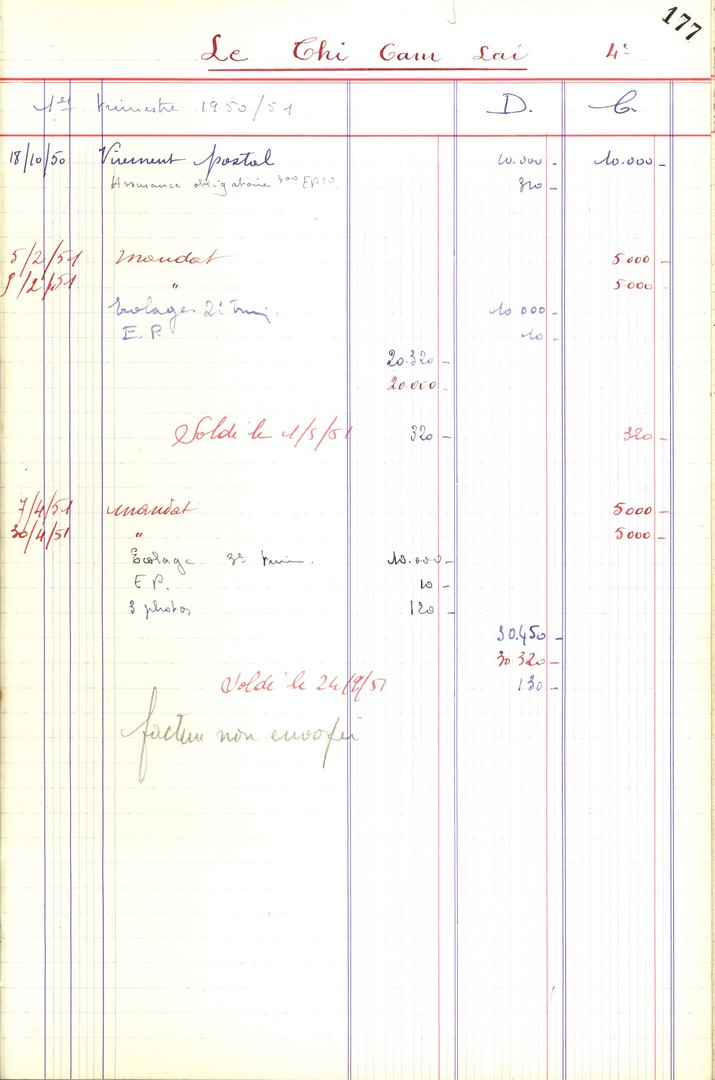 177
Le Thi Cam Lai 4e
1er trimestre 1950/51 D. C.
18/10/50 Virement postal 10.000 - 10.000 -
Assurance obligatoire 300 EP 10 310 -
5/2/51 mandat 5.000 -
9/2/51 " 5000
Ecolages 2e trim. 10 000 -
E.P. 10 -
20.320 -
20.000 -
Soldé le 1/5/51 320 - 320 -
7/4/51 mandat 5000 -
30/4/51 " 5000 -
Ecolage 3e trim. 10.000 -
EP. 10 -
3 photos 120 -
30.450 -
30.320 -
Soldé le 24/9/51 130 -
facture non envoyée